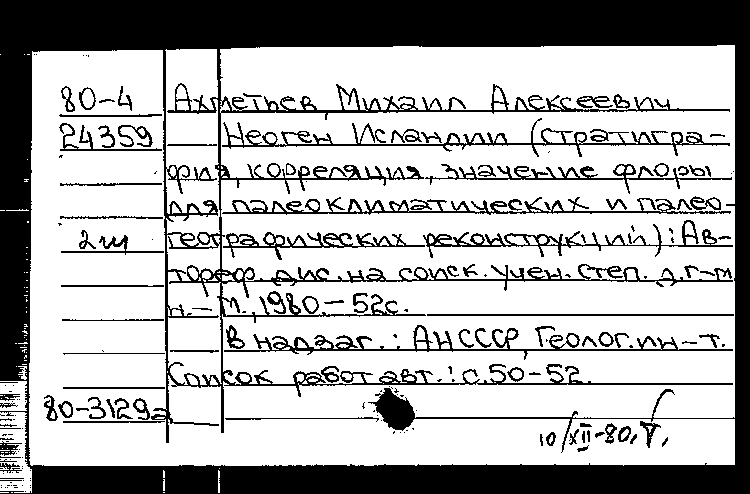 80-4 Ахметьев, Михаил Алексеевич.
24359 Неоген Исландии (стратигра-
фия, корреляция, значение флоры
для палеоклиматических и палео-
2ш географических реконструкций): Ав-
тореф. дис. на соиск. учен. степ. д.г-м.
н. - М., 1980. - 52с.
В надзаг.: АНСССР, Геолог. ин-т.
Список работ авт.: с. 50-52.
80-3129а
10/XII-80.